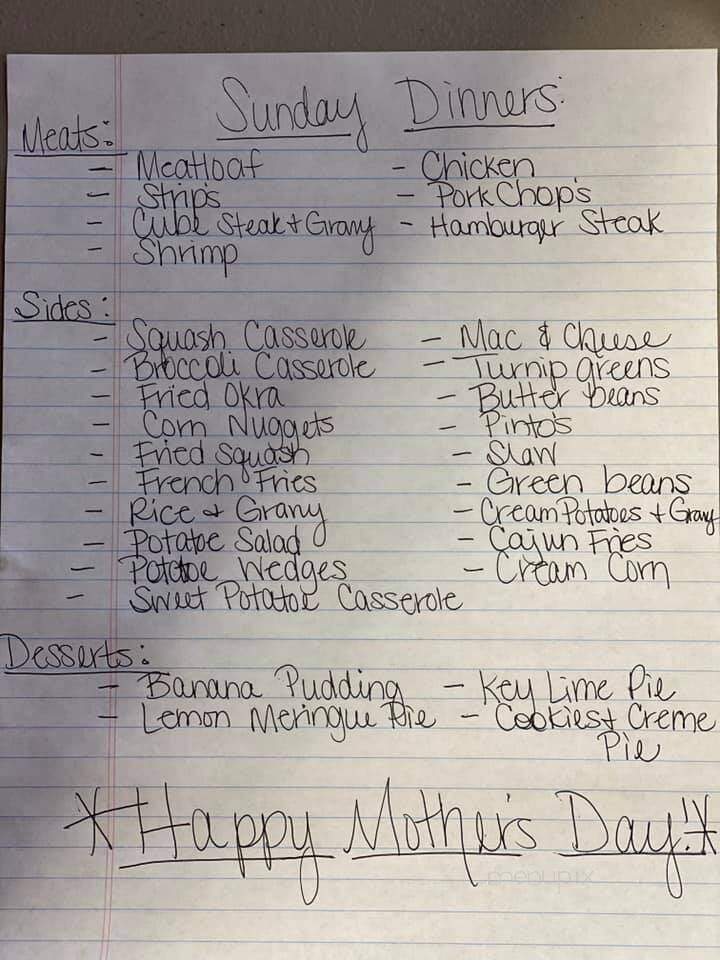 Sunday Dinners:
Meats:
- Meatloaf - Chicken
- Strip's - Pork Chop's
- Cube Steak + Gravy - Hamburger Steak
- Shrimp
Sides:
- Squash Casserole - Mac & Cheese
- Broccoli Casserole - Turnip greens
- Fried Okra - Butter beans
- Corn Nuggets - Pinto's
- Fried Squash - Slaw
- French Fries - Green beans
- Rice + Gravy - Cream Potatoes + Gravy
- Potatoe Salad - Cajun Fries
- Potatoe Wedges - Cream Corn
- Sweet Potatoe Casserole
Desserts:
- Banana Pudding - Key Lime Pie
- Lemon Meringue Pie - Cookies + Creme
Pie
*Happy Mother's Day!*
menupix